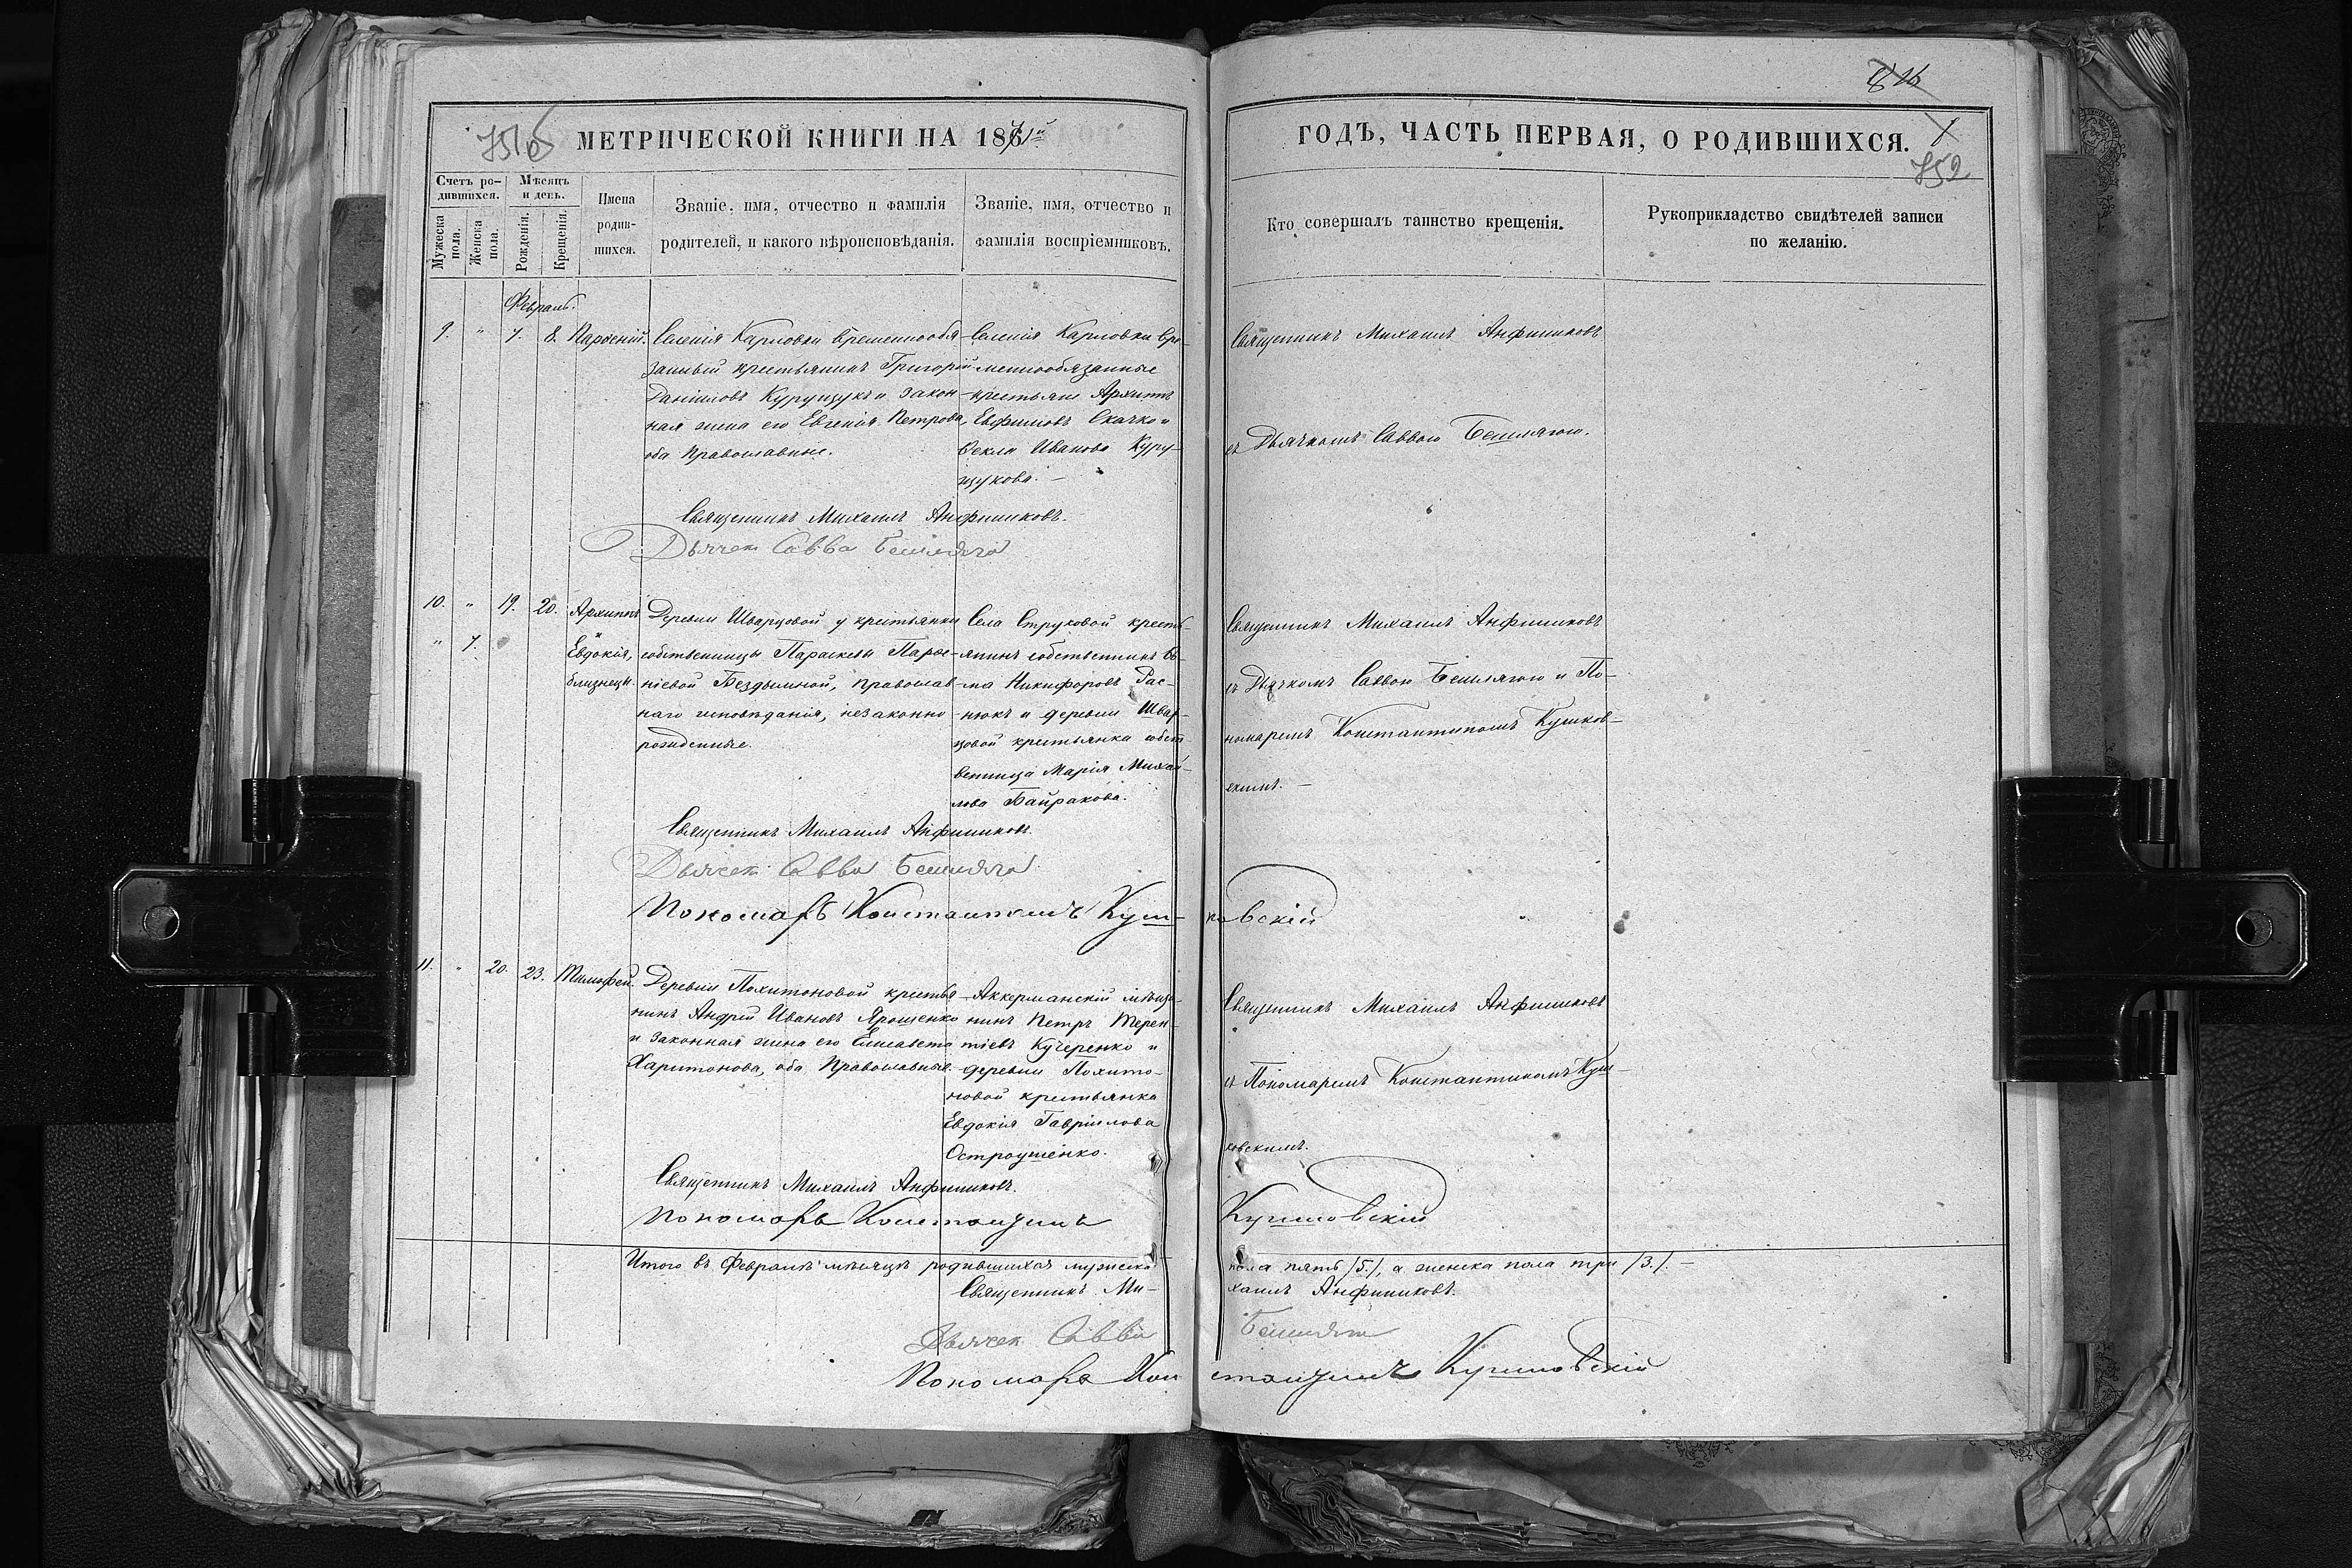 826
751б
МЕТРИЧЕСКОЙ КНИГИ НА 1871й
ГОДЪ, ЧАСТЬ ПЕРВАЯ, О РОДИВШИХСЯ.
752
Счетъ ро-
дившихся.
Мужеска
пола.
Женска
пола.
Мѣсяцъ
и день.
Рожденія.
Крещенія.
Имена
родив-
шихся.
Званіе, имя, отчество и фамилія
родителей, и какого вѣроисповѣданія.
Званіе, имя, отчество и
фамилія воспріемниковъ.
Кто совершалъ таинство крещенія.
Рукоприкладство свидѣтелей записи
по желанію.
Февраль.
9. " 7. 8. Парѳеній.
Селенія Карловки временнообя-
занный крестьянинъ Григорій
Даніиловъ Курущукъ и закон-
ная жена его Евгенія Петрова,
оба православные.
Селенія Карловки вре-
меннообязанные
крестьяне Архиппъ
Евфимовъ Скачко и
Ѳекла Иванова Куру-
щукова. —
Священникъ Михаилъ Анфиниковъ
съ Дьячкомъ Саввою Бешлягою.
Священникъ Михаилъ Анфиниковъ.
Дьячек Савва Бешляга
10. " 19. 20. Архиппъ
" 7. и
Евдокія,
близнецы.
Деревни Шварцовой у крестьянки
собственницы Параскевы Парѳе-
ніевой Бездымной, православ-
наго исповѣданія, незаконно
рожденные.
Села Струковой кресть-
янинъ собственникъ Ѳо-
ма Никифоровъ Рас-
нюкъ и деревни Швар-
цовой крестьянка собст-
венница Марія Михай-
лова Байракова.
Священникъ Михаилъ Анфиниковъ
съ Дьячкомъ Саввою Бешлягою и По-
номаремъ Константиномъ Кушков-
скимъ. —
Священникъ Михаилъ Анфиниковъ.
Дьячек Савва Бешляга
Пономарь Константинъ Куш-
ковскій
11. " 20. 23. Тимофей.
Деревни Похитоновой крестья-
нинъ Андрей Ивановъ Ярошенко
и законная жена его Елисавета
Харитонова, оба православные.
Аккерманскій мѣща-
нинъ Петръ Терен-
тіевъ Кучеренко и
деревни Похито-
новой крестьянка
Евдокія Гавріилова
Остроушенко.
Священникъ Михаилъ Анфиниковъ
съ Пономаремъ Константиномъ Куш-
ковскимъ.
Священникъ Михаилъ Анфиниковъ.
Пономарь Константинъ
Кушковскій
Итого въ Февралѣ мѣсяцѣ родившихся мужеска
пола пять /5./, а женска пола три /3./. —
Священникъ Ми-
хаилъ Анфиниковъ.
Дьячек Савва
Бешляга
Пономарь Кон
стантинъ Кушковскій